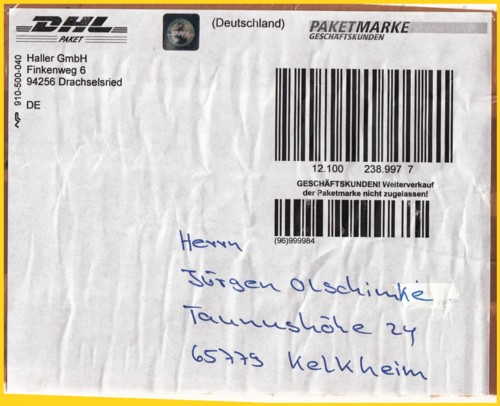 DHL
PAKET
(Deutschland)
PAKETMARKE
GESCHÄFTSKUNDEN
Haller GmbH
Finkenweg 6
94256 Drachselsried
DE
910-500-040
12.100 238.997 7
GESCHÄFTSKUNDEN! Weiterverkauf
der Paketmarke nicht zugelassen!
(96)999984
Herrn
Jürgen Olschimke
Taunushöhe 24
65779 Kelkheim